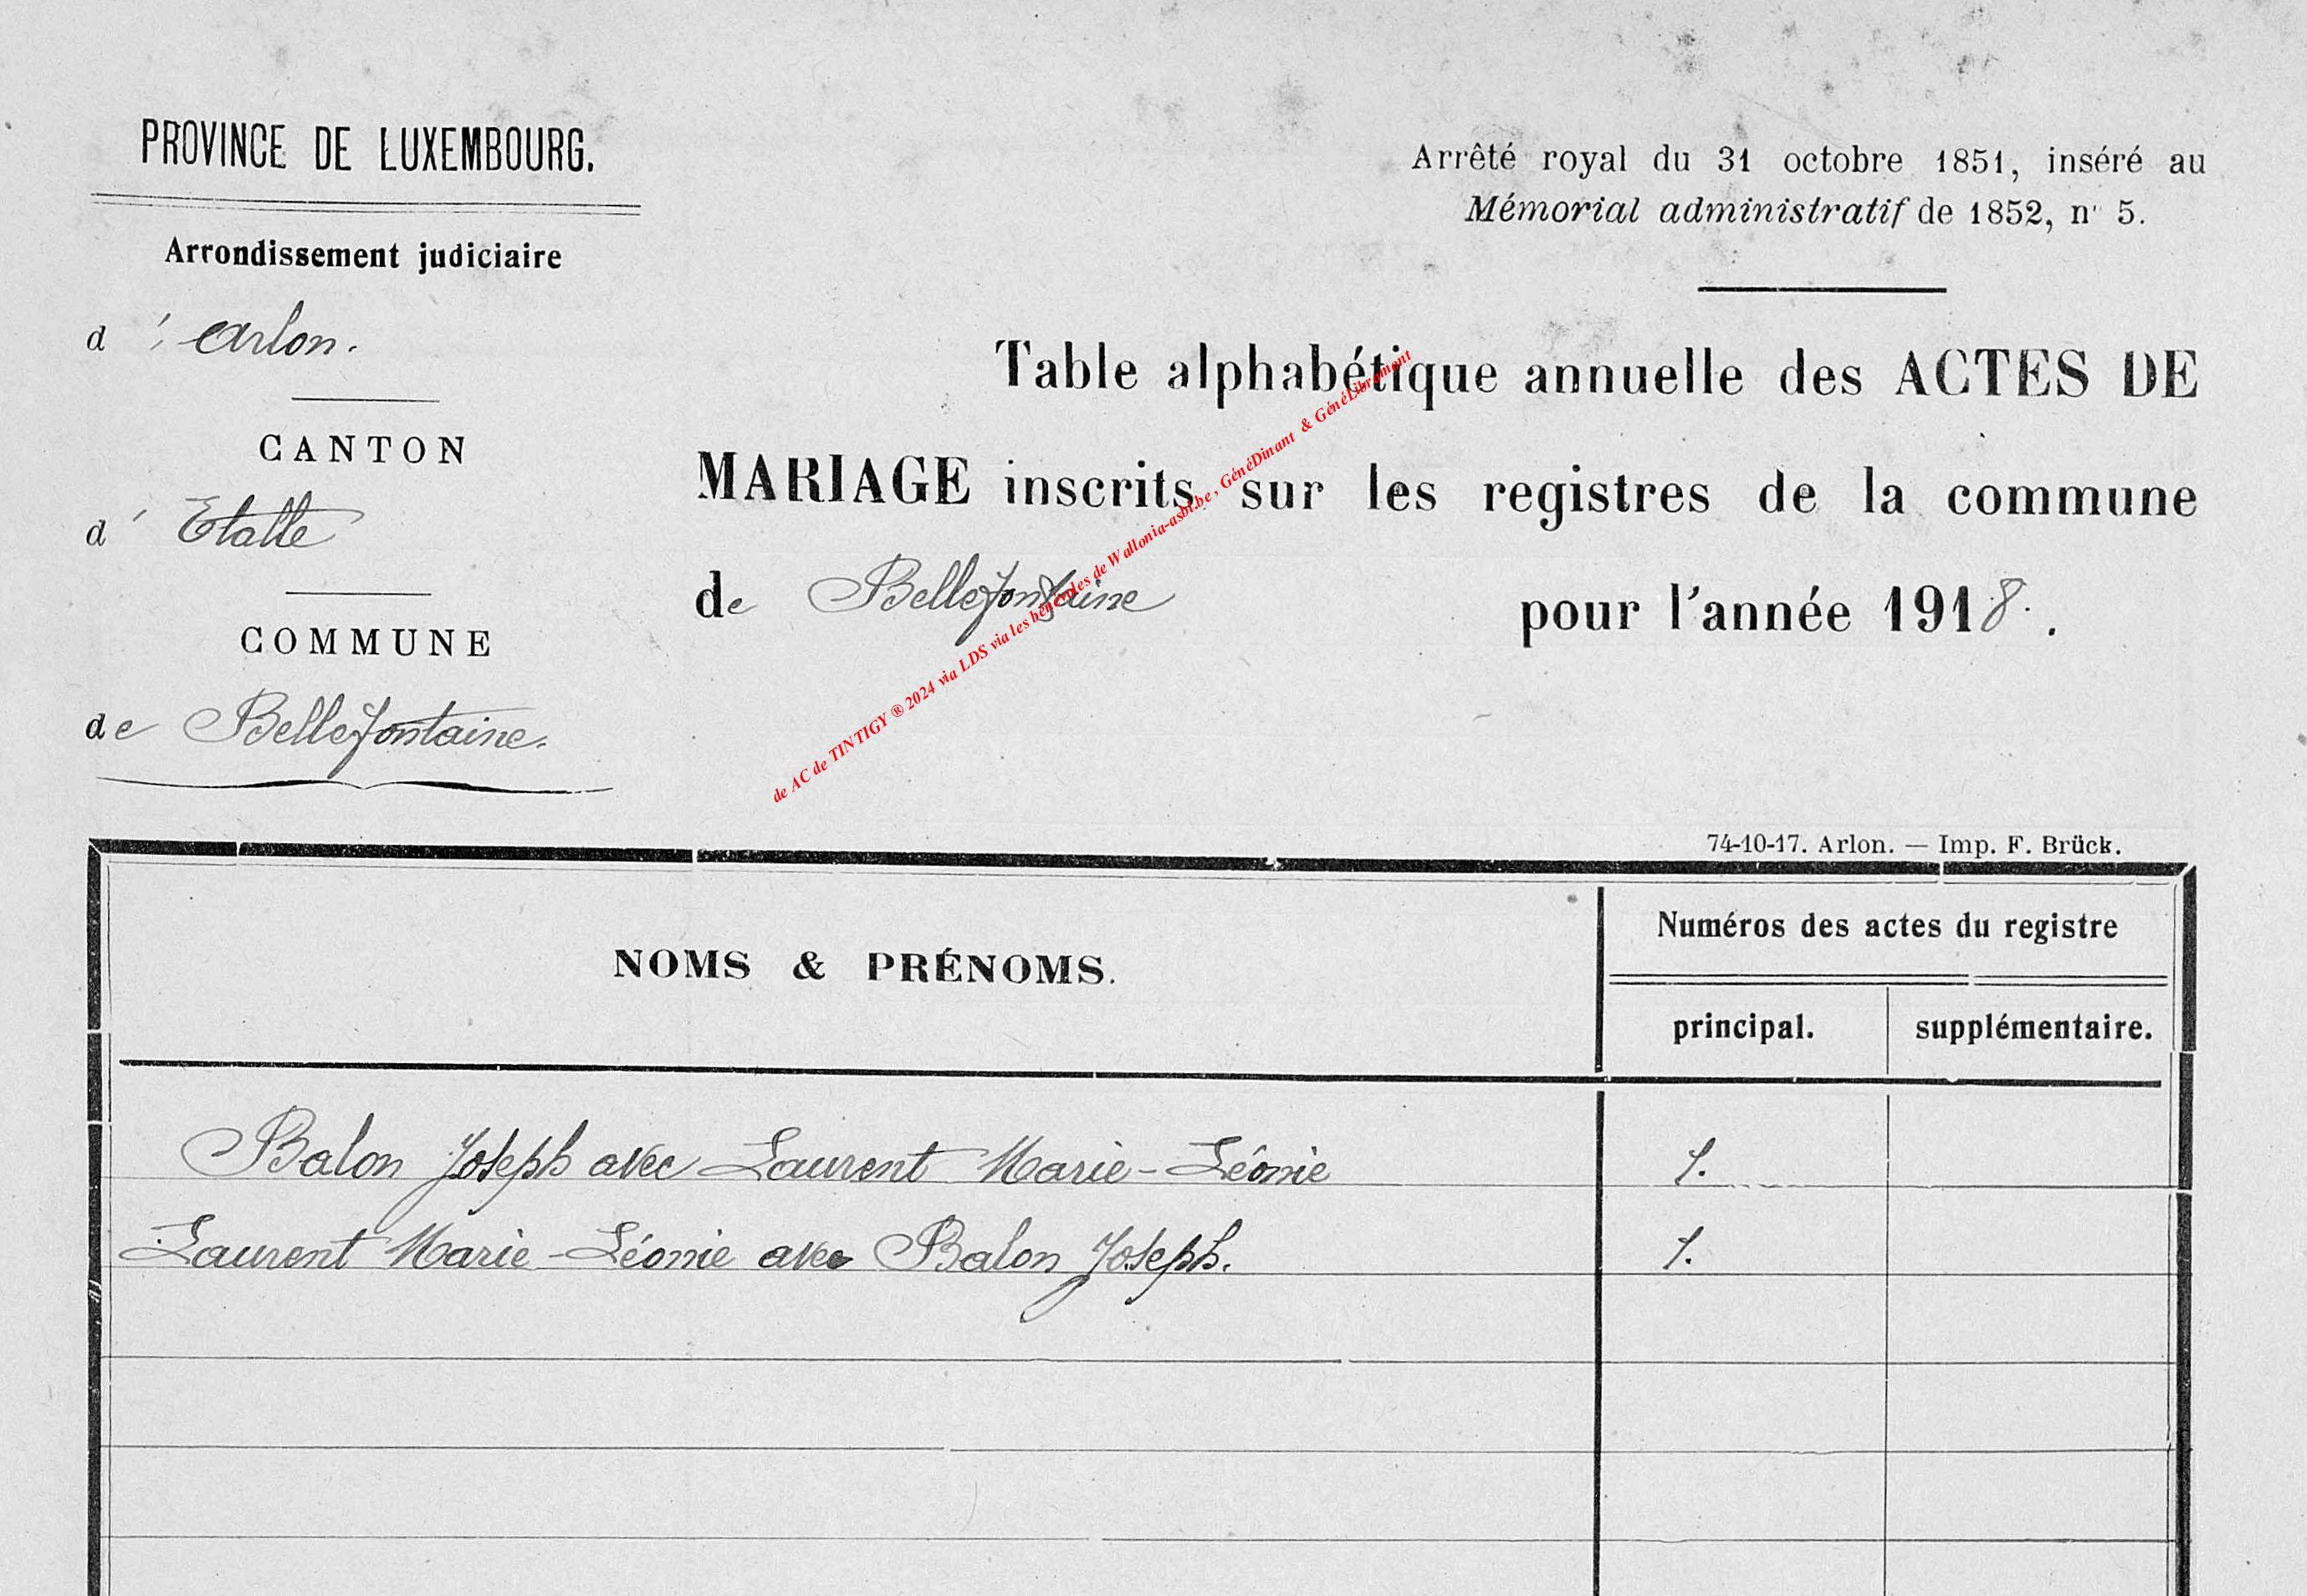 PROVINCE DE LUXEMBOURG.
Arrondissement judiciaire
d' Arlon.
CANTON
d' Etalle
COMMUNE
de Bellefontaine.
Arrêté royal du 31 octobre 1851, inséré au
Mémorial administratif de 1852, n° 5.
Table alphabétique annuelle des ACTES DE
MARIAGE inscrits sur les registres de la commune
de Bellefontaine pour l'année 1918.
de AC de TINTIGY ® 2024 via LDS via les bénévoles de Wallonia-asbl.be, GénéDinant & GénéLibramont
74-10-17. Arlon. — Imp. F. Brück.
NOMS & PRÉNOMS.
Numéros des actes du registre
principal. supplémentaire.
Balon Joseph avec Laurent Marie-Léonie 1.
Laurent Marie-Léonie avec Balon Joseph. 1.